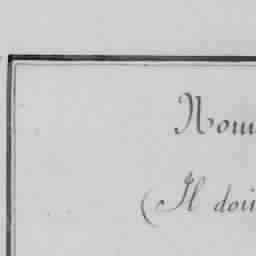 Nom
(Il doi